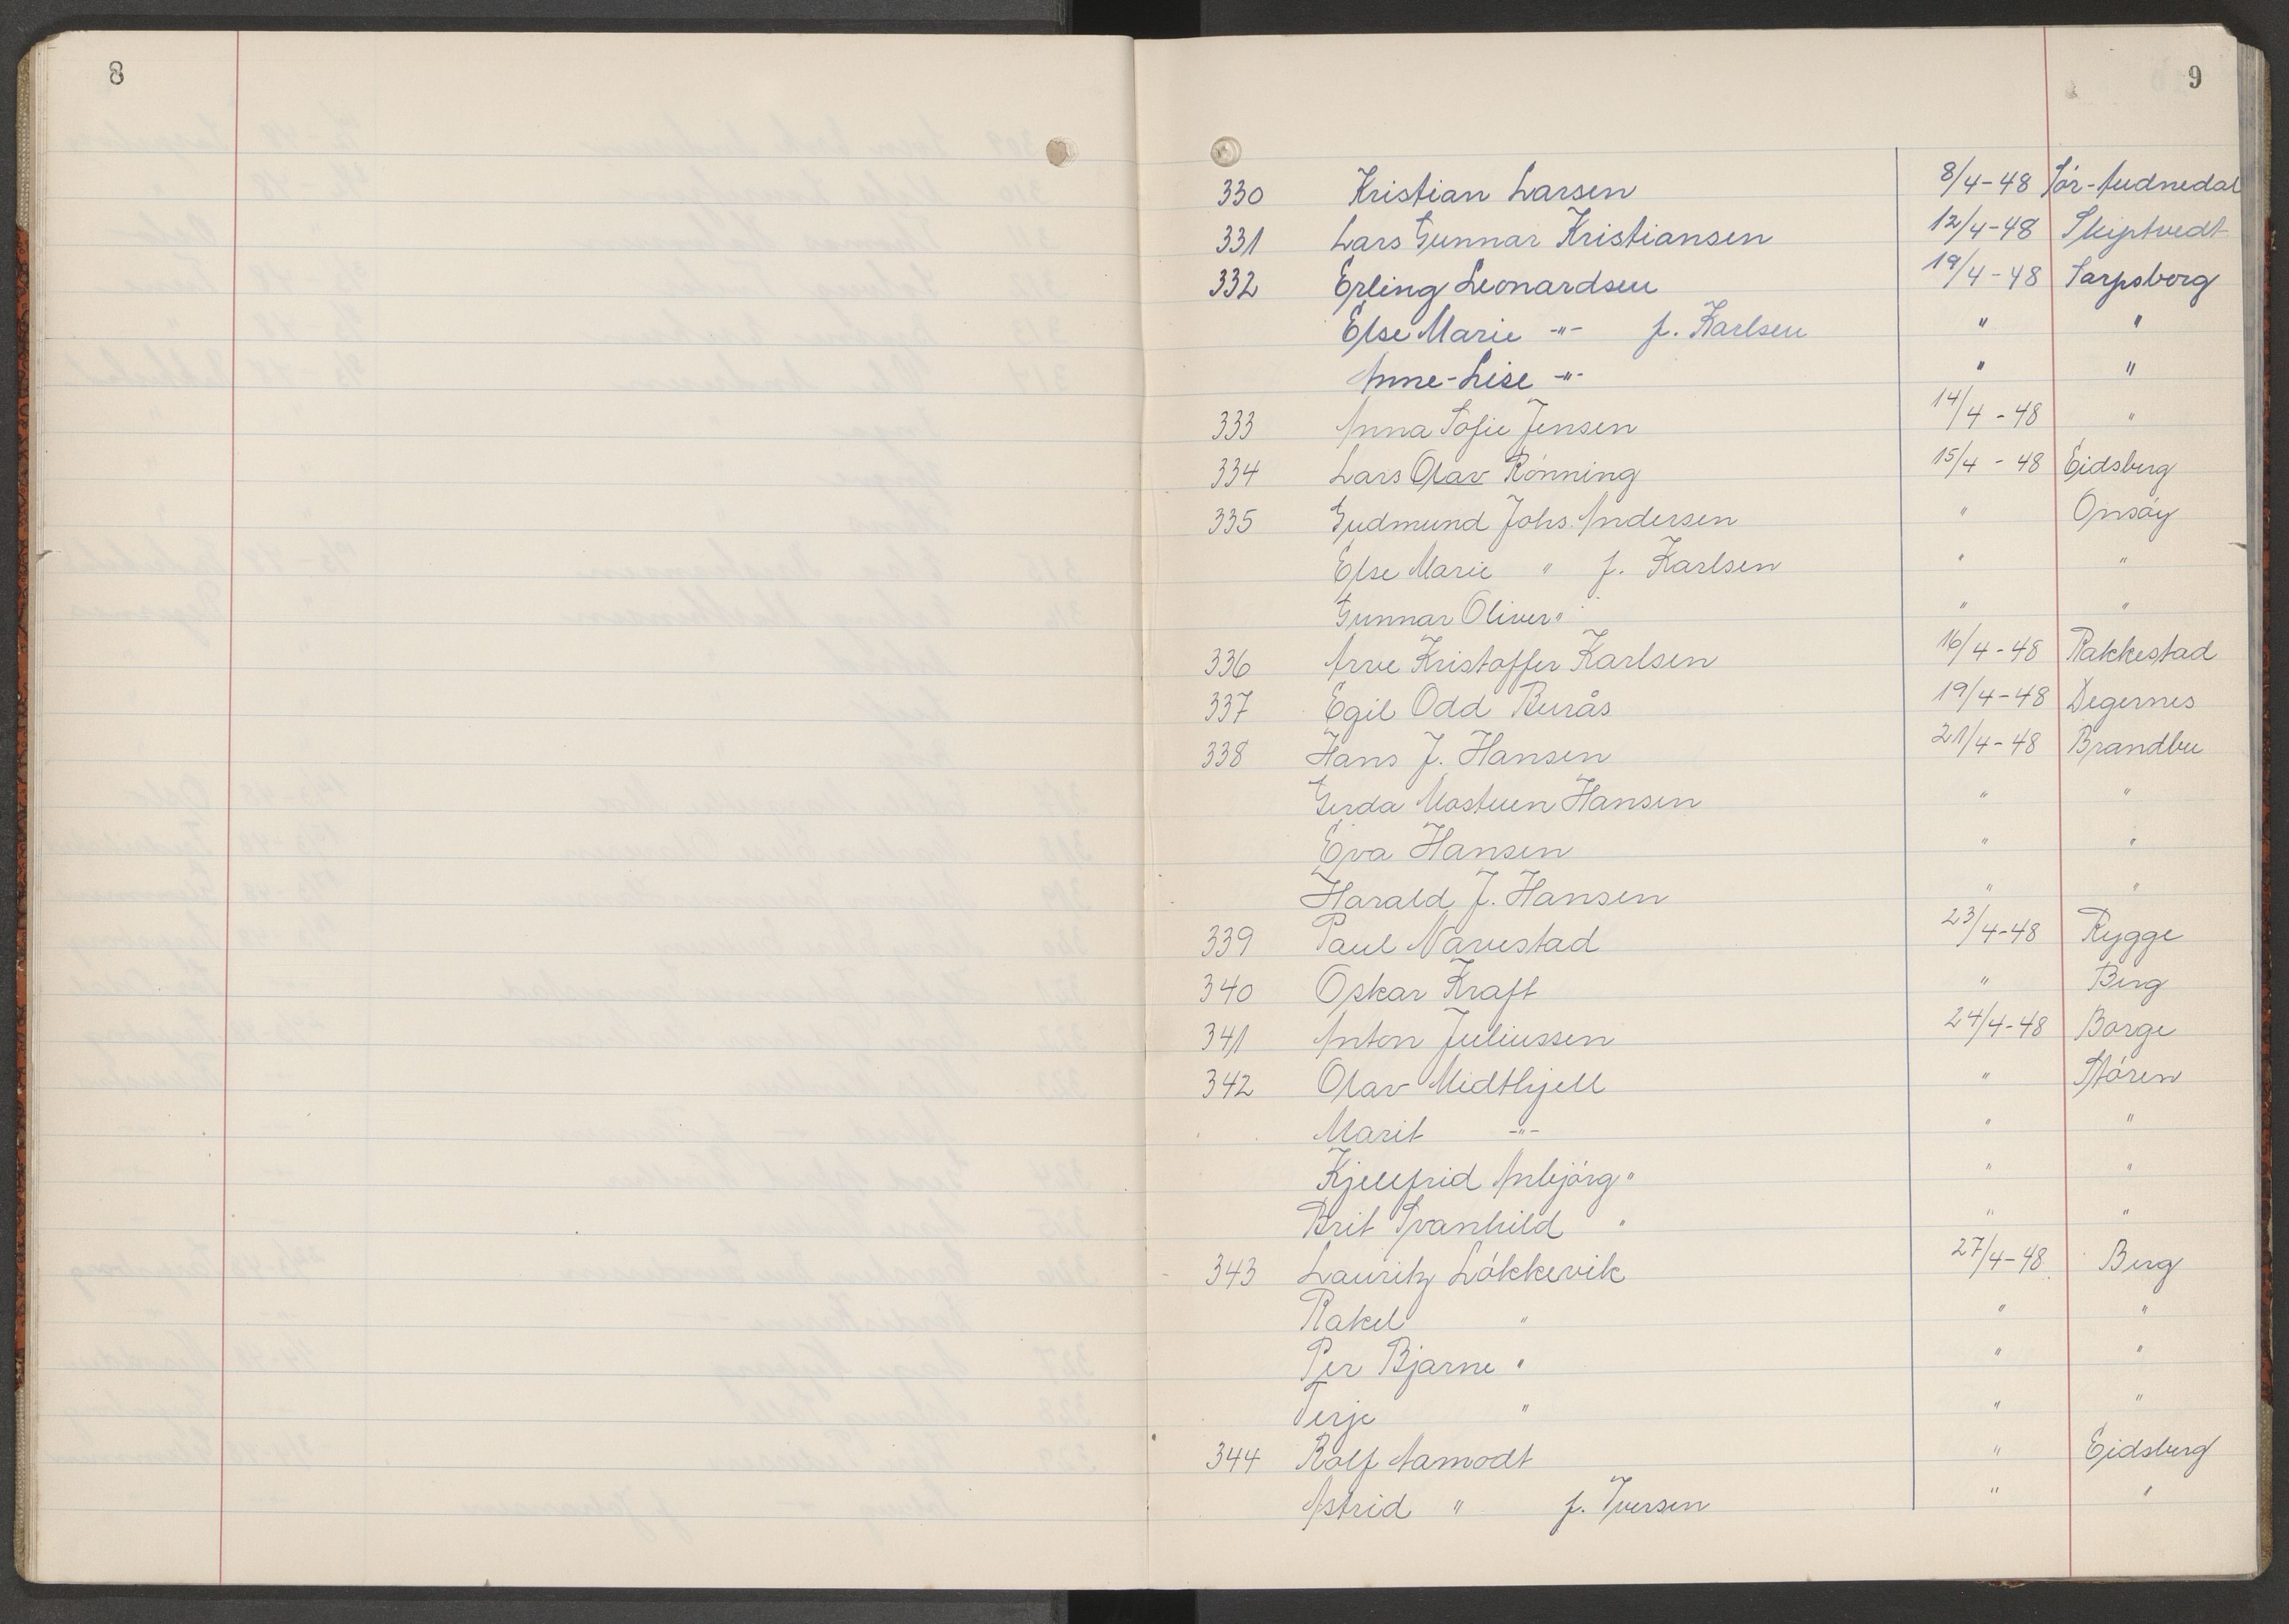 8
9
330 Kristian Larsen 8/4-48 Sör-Audnedal
331 Lars Gunnar Kristiansen 12/4-48 Skiptvedt
332 Erling Leonardsen 19/4-48 Sarpsborg
Else Marie -"- f. Karlsen " "
Anne-Lise -"- " "
333 Anna Sofie Jensen 14/4-48 "
334 Lars Olav Rönning 15/4-48 Eidsberg
335 Gudmund Johs. Andersen " Onsöy
Else Marie " f. Karlsen " "
Gunnar Oliver " " "
336 Arve Kristoffer Karlsen 16/4-48 Rakkestad
337 Egil Odd Burås 19/4-48 Degernes
338 Hans J. Hansen 21/4-48 Brandbu
Gerda Mostuen Hansen " "
Eva Hansen " "
Harald J. Hansen " "
339 Paul Navestad 23/4-48 Rygge
340 Oskar Kraft " Berg
341 Anton Juliussen 24/4-48 Borge
342 Olav Midthjell " Stören
Marit -"- " "
Kjellfrid Arbjörg " " "
Brit Svanhild " " "
343 Lauritz Lökkevik 27/4-48 Berg
Rakel " " "
Per Bjarne " " "
Terje " " "
344 Rolf Aamodt " Eidsberg
Astrid " f. Iversen " "